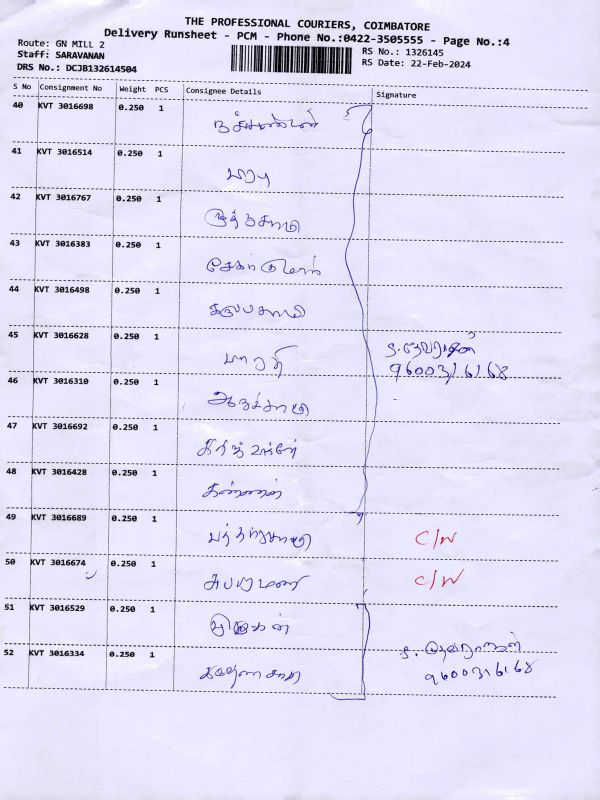 THE PROFESSIONAL COURIERS, COIMBATORE
Delivery Runsheet - PCM - Phone No.:0422-3505555 - Page No.:4
Route: GN MILL 2
Staff: SARAVANAN
DRS No.: DCJB132614504
RS No.: 1326145
RS Date: 22-Feb-2024
S No Consignment No Weight PCS Consignee Details Signature
40 KVT 3016698 0.250 1
41 KVT 3016514 0.250 1
42 KVT 3016767 0.250 1 முத்துசாமி
43 KVT 3016383 0.250 1 சேகர் குமார்
44 KVT 3016498 0.250 1 கருப்பசாமி
45 KVT 3016628 0.250 1 பாரதி
9600316168
46 KVT 3016310 0.250 1 ஆறுச்சாமி
47 KVT 3016692 0.250 1
48 KVT 3016428 0.250 1 கண்ணன்
49 KVT 3016689 0.250 1 C/N
50 KVT 3016674 0.250 1 சுப்ரமணி C/N
51 KVT 3016529 0.250 1 முருகன்
52 KVT 3016334 0.250 1
9600316168